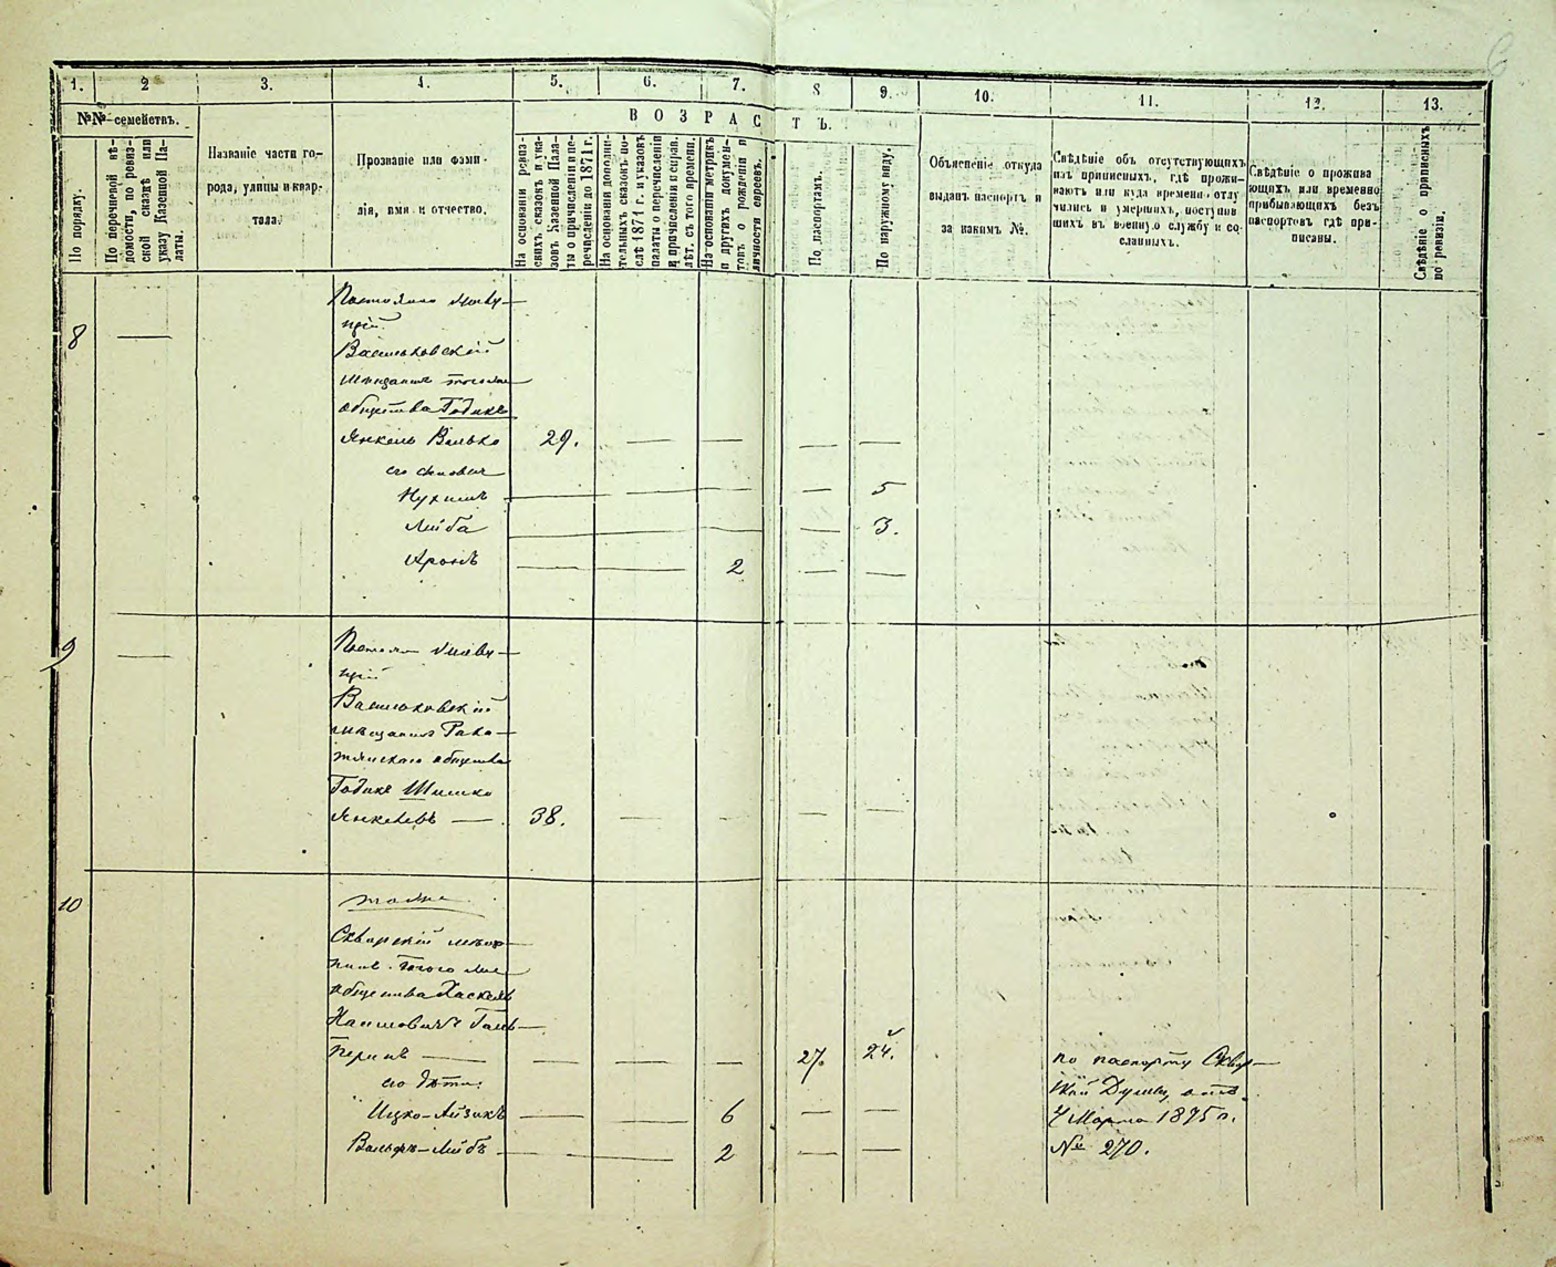 6
1. 2 3. 4. 5. 6. 7. 8 9. 10. 11. 12. 13.
№№ семействъ.
По порядку.
По перечневой вѣ-
домости, по ревиз-
ской сказкѣ или
указу Казенной Па-
латы.
Названіе части го-
рода, улицы и квар-
тала.
Прозваніе или фами-
лія, имя и отчество.
ВОЗРАСТЪ.
На основаніи ревиз-
скихъ сказокъ и ука-
зовъ Казенной Пала-
ты о причисленіи и пе-
речисленіи до 1871 г.
На основаніи дополни-
тельныхъ сказокъ по-
слѣ 1871 г. и указовъ
палаты о перечисленіи
и причисленіи и справ.
лѣт. съ того времени.
На основаніи метрикъ
и другихъ докумен-
товъ о рожденіи и
личности евреевъ.
По паспортамъ.
По наружному виду.
Объясненіе откуда
выданъ паспортъ и
за какимъ №.
Свѣдѣніе объ отсутствующихъ
изъ приписныхъ, гдѣ прожи-
ваютъ или куда временно отлу
чились и умершихъ, поступив
шихъ въ военную службу и со-
сланныхъ.
Свѣдѣніе о прожива
ющихъ или временно
прибывающихъ безъ
паспортовъ гдѣ при-
писаны.
Свѣдѣніе о приписныхъ
по ревизіи.
8 — Постоянно живу-
щій
Васильковскій
мѣщанинъ того же
общества Годикъ
Янкель Волько 29. — — — —
его сыновья
Нухимъ — — — — 5
Лейба — — — — 3.
Аронъ — — 2 — —
9 — Постоянно живу-
щій
Васильковскій
мѣщанинъ Рако-
тянскаго общества
Годикъ Шимко
Янкелевъ — 38. — — — —
10 тоже
Сквирскій мѣщан-
нинъ того же
общества Хаскель
Хаимовичъ Галь-
перинъ — — — — 27. 24. по паспорту Сквир-
его дѣти: ской Думы, отъ
Ицко-Айзикъ — — 6 — — 4 Марта 1875 г.
Вольфъ-Лейбъ — — 2 — — № 270.